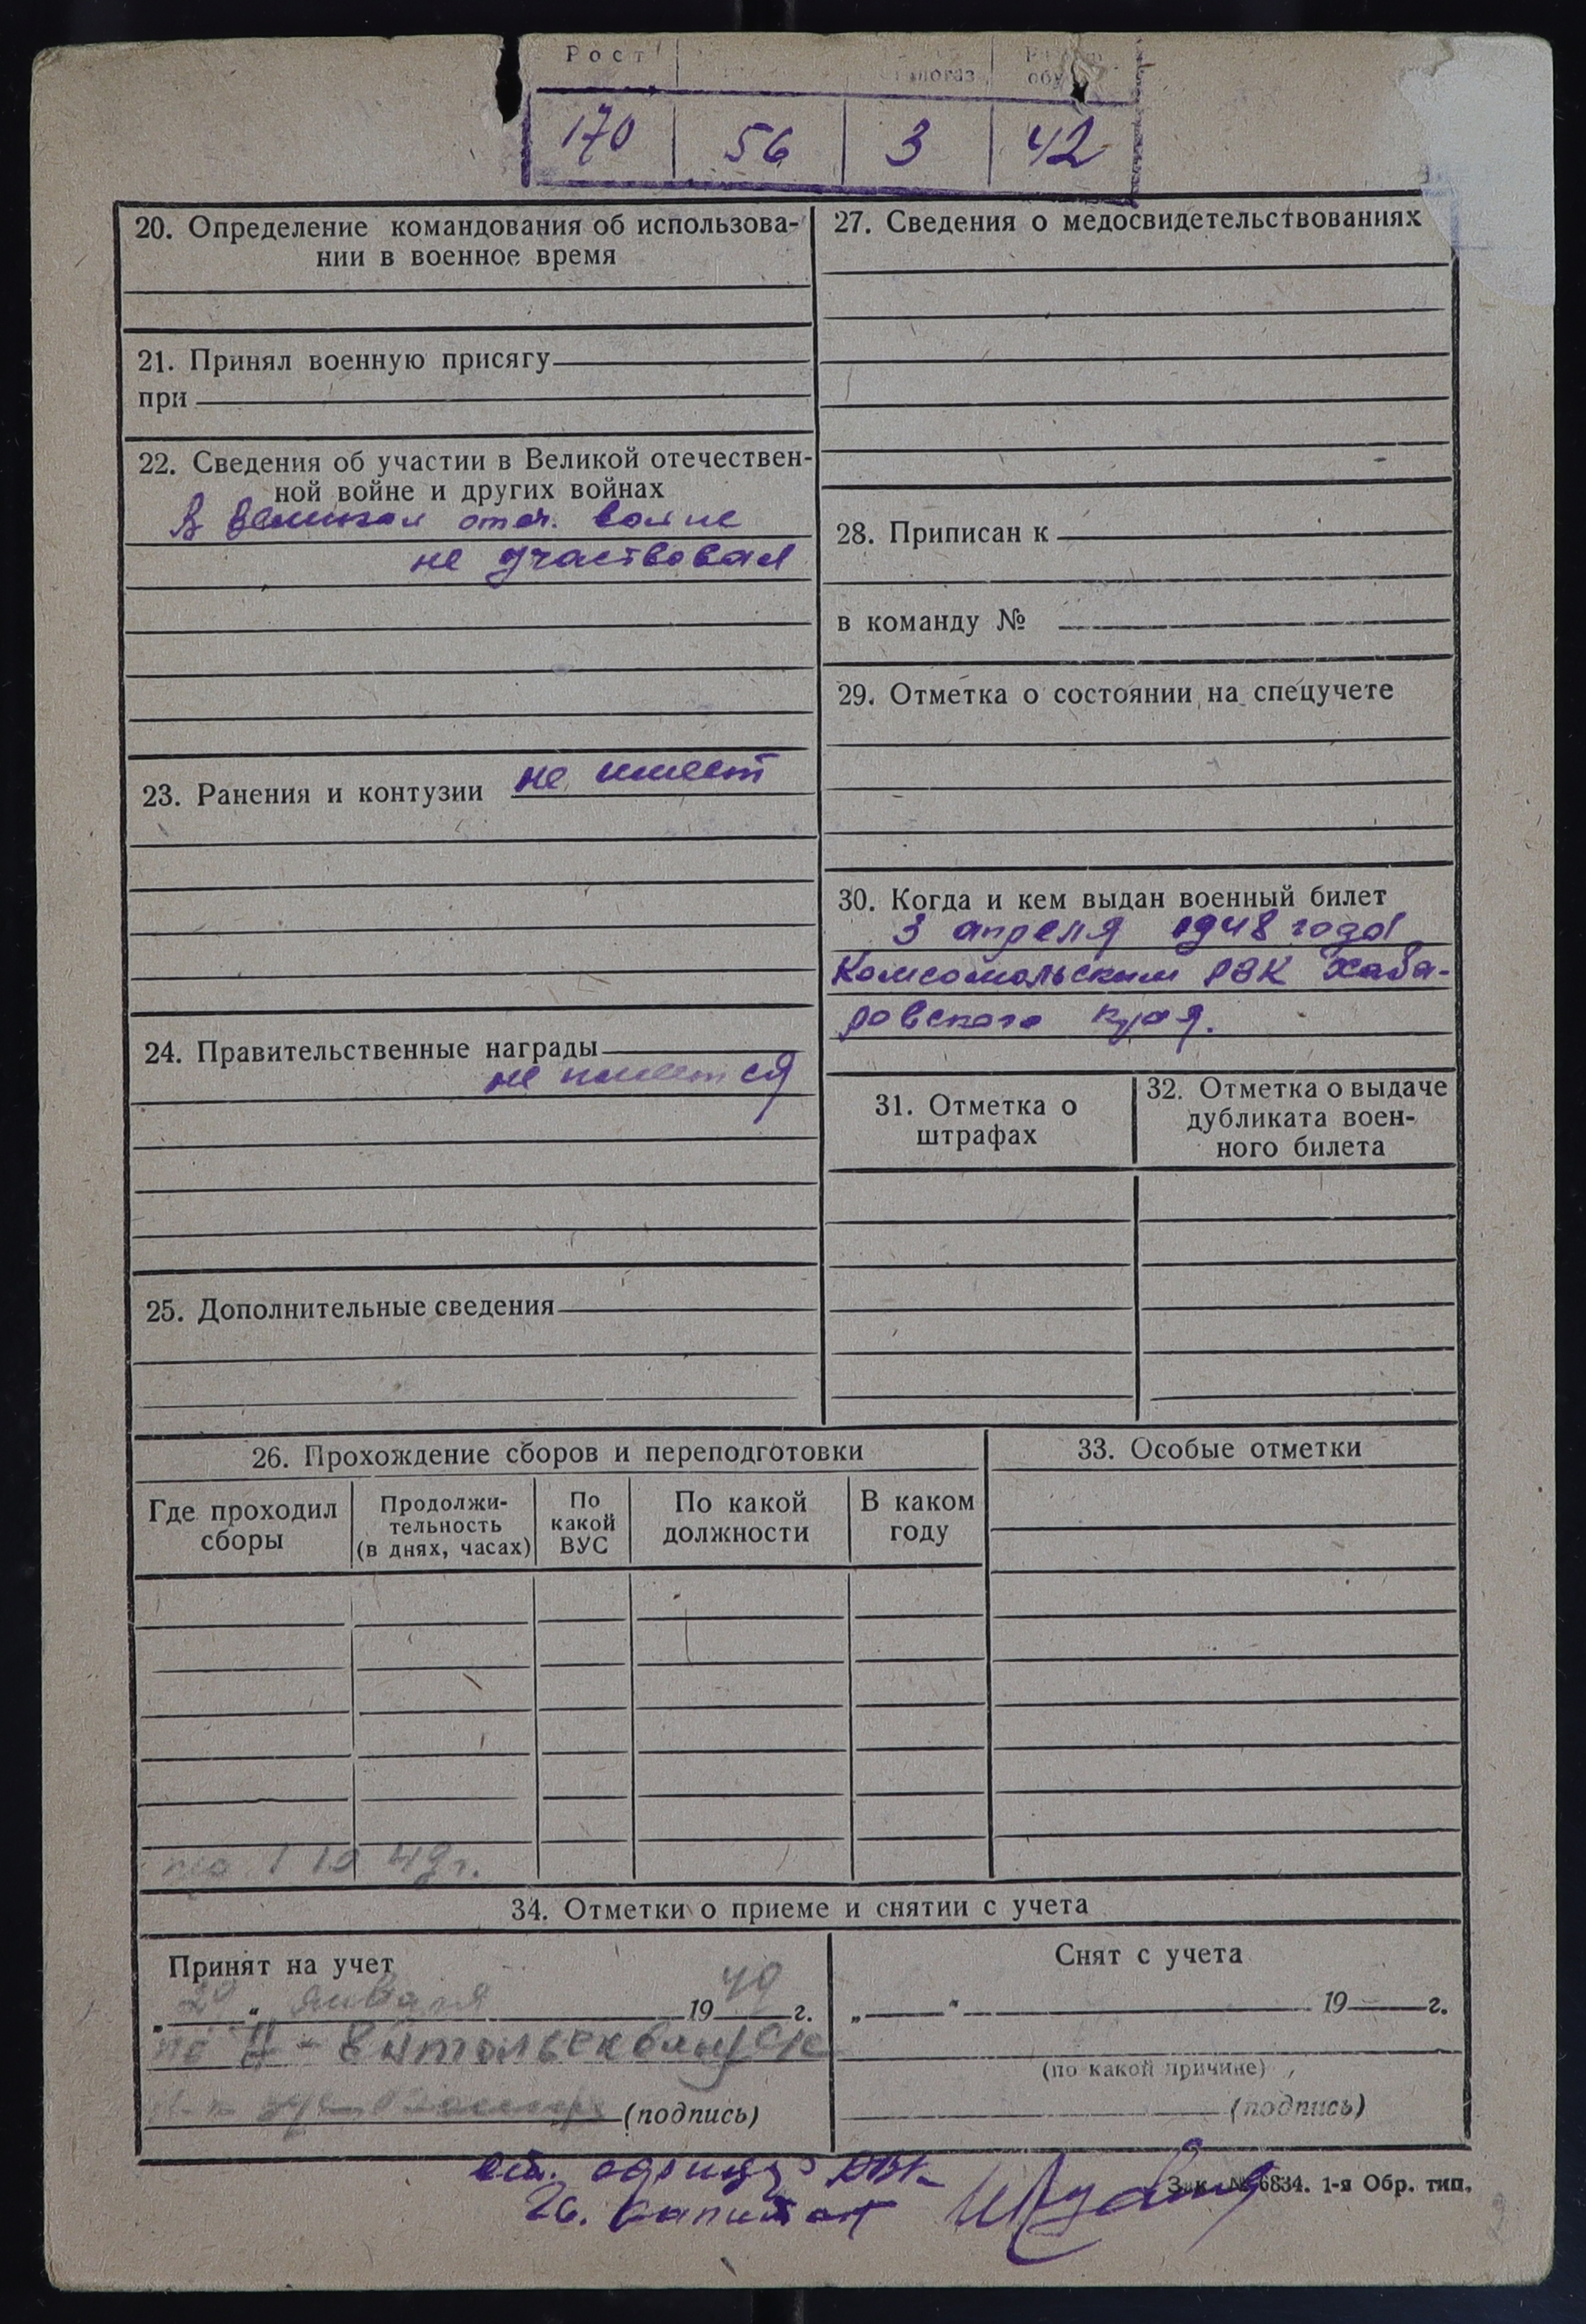 Рост
170 56 3 42
20. Определение командования об использова-
нии в военное время
21. Принял военную присягу
при
22. Сведения об участии в Великой отечествен-
ной войне и других войнах
В великой отеч. войне
не участвовал
23. Ранения и контузии не имеет
24. Правительственные награды
не имеется
25. Дополнительные сведения
27. Сведения о медосвидетельствованиях
28. Приписан к
в команду №
29. Отметка о состоянии на спецучете
30. Когда и кем выдан военный билет
3 апреля 1948 года
Комсомольским РВК Хаба-
ровского края.
31. Отметка о
штрафах
32. Отметка о выдаче
дубликата воен-
ного билета
26. Прохождение сборов и переподготовки
Где проходил
сборы
Продолжи-
тельность
(в днях, часах)
По
какой
ВУС
По какой
должности
В каком
году
33. Особые отметки
49 г.
34. Отметки о приеме и снятии с учета
Принят на учет
„ “ января 1949 г.
(подпись)
Снят с учета
„ “ 19 г.
(по какой причине)
(подпись)
Зак. № 6834. 1-я Обр. тип.
капитан